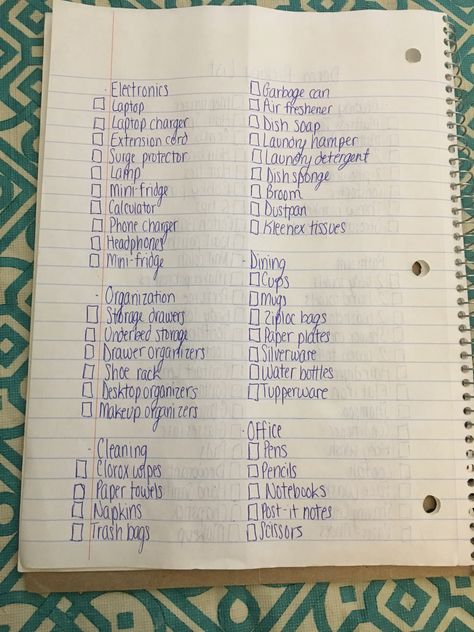 · Electronics
Laptop
Laptop charger
Extension cord
Surge protector
Lamp
Mini-fridge
Calculator
Phone charger
Headphones
Mini-fridge
· Organization
Storage drawers
Underbed storage
Drawer organizers
Shoe rack
Desktop organizers
Makeup organizers
· Cleaning
Clorox wipes
Paper towels
Napkins
Trash bags
Garbage can
Air freshener
Dish soap
Laundry hamper
Laundry detergent
Dish sponge
Broom
Dustpan
Kleenex tissues
· Dining
Cups
Mugs
Ziploc bags
Paper plates
Silverware
Water bottles
Tupperware
· Office
Pens
Pencils
Notebooks
Post-it notes
Scissors